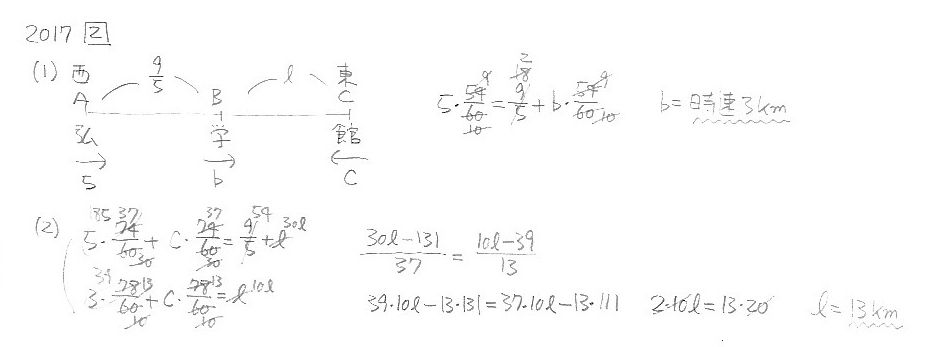 2017 2
(1) 西 9/5 l 東
A B C
弘 学 館
5 b C
5・54/60 = 9/5 + b・54/60 b = 時速3km
(2) 5・74/60 + C・74/60 = 9/5 + l
3・78/60 + C・78/60 = l
(30l-131)/37 = (10l-39)/13
39・10l-13・131=37・10l-13・111 2・10l=13・20 l=13km